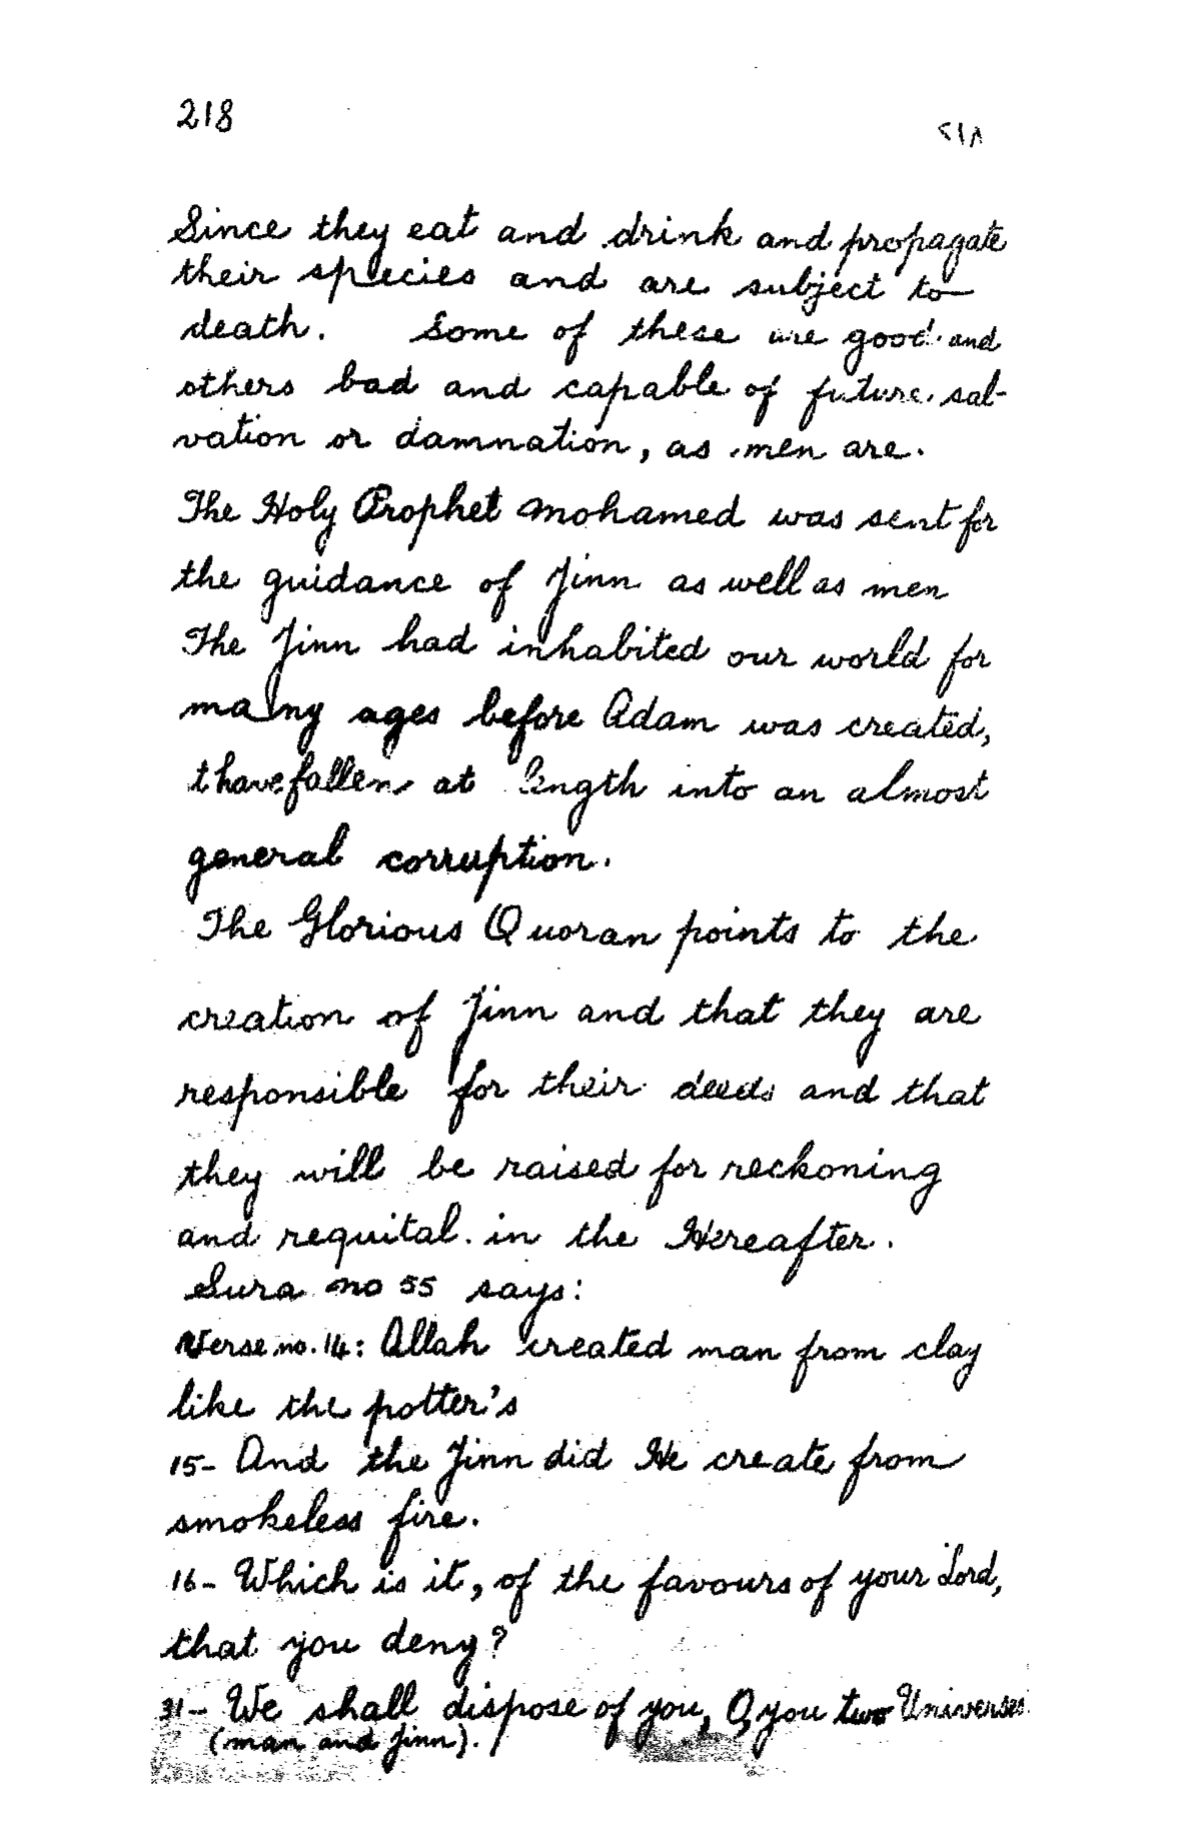 218
٢١٨
Since they eat and drink and propagate
their species and are subject to
death. Some of these are good and
others bad and capable of future sal-
vation or damnation, as men are.
The Holy Prophet Mohamed was sent for
the guidance of Jinn as well as men
The Jinn had inhabited our world for
many ages before Adam was created,
t have fallen at length into an almost
general corruption.
The Glorious Quoran points to the
creation of Jinn and that they are
responsible for their deeds and that
they will be raised for reckoning
and requital in the Hereafter.
Sura no 55 says:
Verse no. 14: Allah created man from clay
like the potter's
15- And the Jinn did He create from
smokeless fire.
16- Which is it, of the favours of your Lord,
that you deny?
31- We shall dispose of you, O, you two Universes
(man and Jinn).